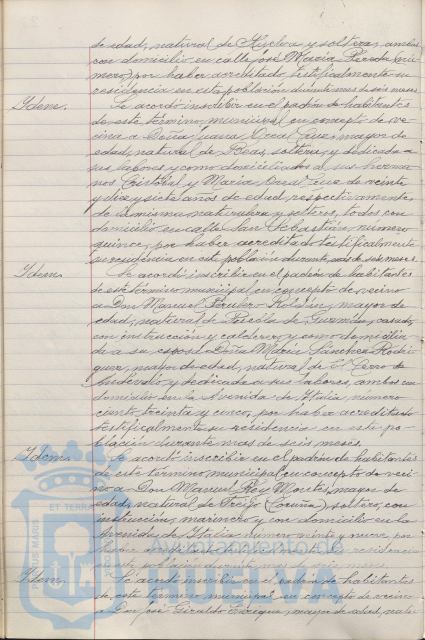 de edad, natural de Huelva y soltera, ambos
con domicilio en calle José María Pereda nú-
mero, por haber acreditado testificalmente su
residencia en esta población durante mas de seis meses.
Idem. Se acordó inscribir en el padrón de habitantes
de este término municipal en concepto de ve-
cina a Doña Juana mayor de
edad, natural de Beas, soltera, y dedicada a
sus labores y como domiciliados a sus herma
nos Cristóbal y María de veinte
y diez y siete años de edad, respectivamente,
de la misma naturaleza y solteros, todos con
domicilio en calle San Sebastián, numero
quince, por haber acreditado testificalmente
su residencia en esta población durante mas de seis meses.
Idem. Se acordó inscribir en el padrón de habitantes
de este término municipal en concepto de vecino
a Don Manuel mayor de
edad, natural de Guzmán, casado,
con instrucción y calderero y como domicilia-
da a su esposa Doña María Sánchez Rodrí-
guez, mayor de edad, natural de El Cerro de
Andévalo y dedicada a sus labores, ambos con
domicilio en la Avenida de Italia número
ciento treinta y cinco, por haber acreditado
testificalmente su residencia en esta po-
blación durante mas de seis meses.
Idem. Se acordó inscribir en el padrón de habitantes
de este término municipal en concepto de veci-
no a Don Manuel Rey mayor de
edad, natural de (Coruña), soltero, con
instrucción, marinero y con domicilio en la
Avenida de Italia número veinte y nueve, por
haber residencia
en esta población durante mas de seis meses.
Idem. Se acordó inscribir en el padrón de habitantes
de este término municipal en concepto de vecino
a Don José Giraldo mayor de edad, natu-
PORTUS MARIS ET TERRAE
Ayuntamiento de